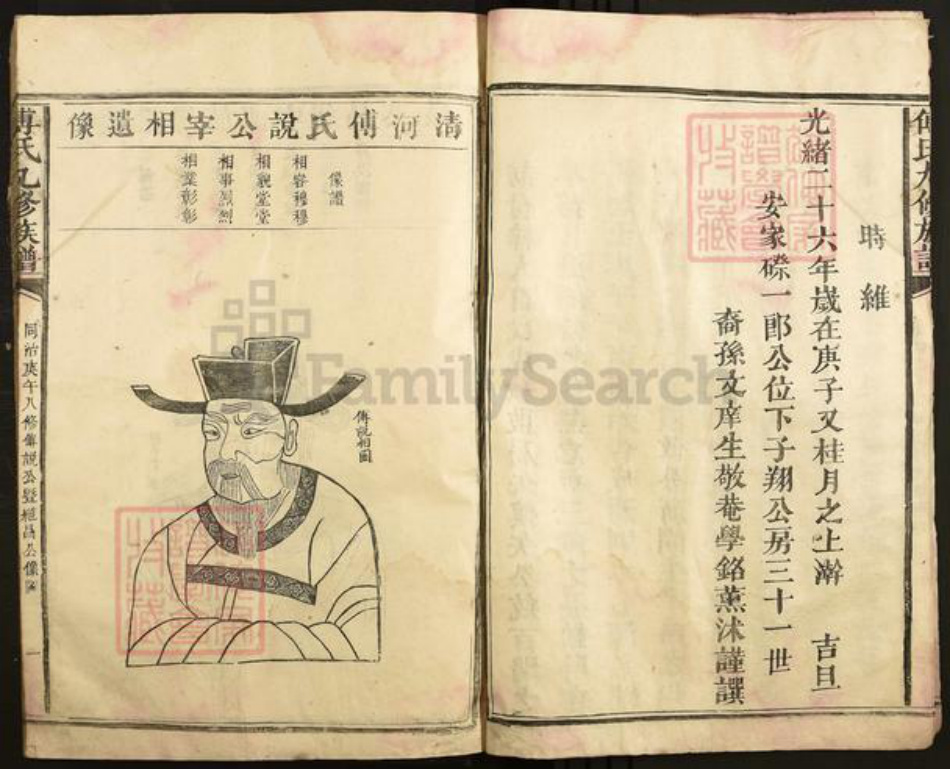 時維
光緒二十六年歲在庚子又桂月之上澣 吉旦
安家磜一郎公位下子翔公房三十一世
裔孫文庠生敬菴學銘薰沐謹譔
傅氏九修族譜
清河傅氏說公宰相遺像
像讚
相容穆穆
相貌堂堂
相事烈烈
相業彰彰
傅說相圖
傅氏九修族譜
同治庚午八修傅說公暨
公像
一
FamilySearch